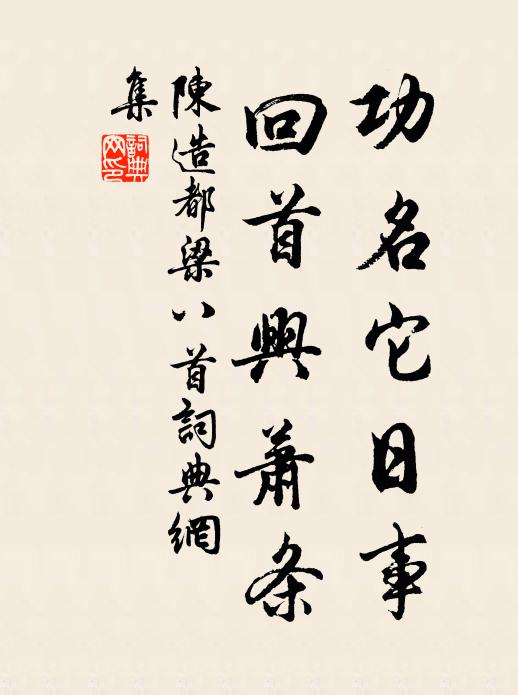 功名它日事
回首興蕭条
陳造都梁八首詞典網
集
詞典
网印